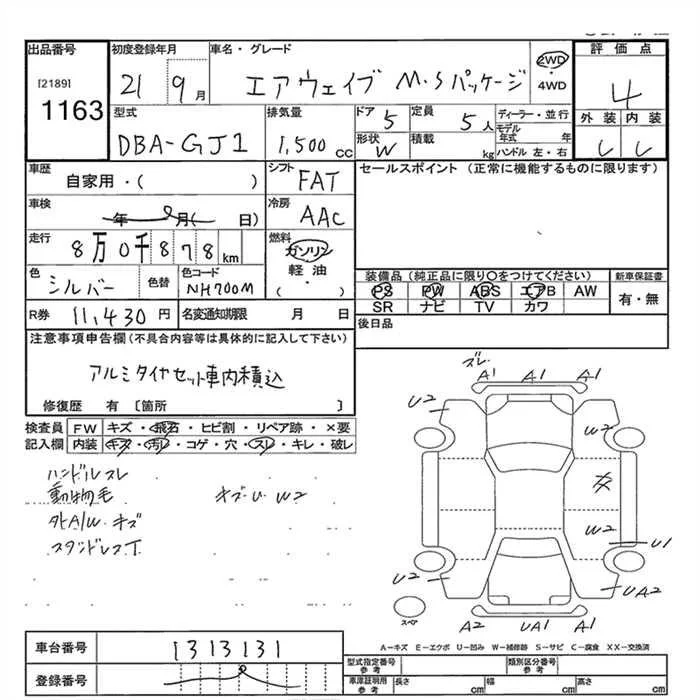 出品番号
[2189]
1163
初度登録年月
21 9月
車名・グレード
エアウェイブ M・Sパッケージ
2WD
・
4WD
評価点
4
外装 内装
型式
DBA-GJ1
排気量
1,500 cc
ドア 5
形状 W
定員 5人
積載 kg
ディーラー・並行
モデル年式 年
ハンドル 左・右
車歴
自家用・( )
シフト FAT
セールスポイント (正常に機能するものに限ります)
車検
年 月( 日)
冷房 AAC
走行
8万0千878km
燃料
ガソリン
軽油
( ・ )
色 シルバー
色替
色コード NH700M
装備品(純正品に限り○をつけてください)
PS PW ABS エアB AW
SR ナビ TV カワ
新車保証書
有・無
R券 11,430円
名変通知期限 月 日
後日品
注意事項申告欄(不具合内容等は具体的に記入して下さい)
アルミタイヤセット車内積込
修復歴 有 〔箇所 〕
検査員記入欄
FW キズ・飛石・ヒビ割・リペア跡・×要
内装 キズ・汚れ・コゲ・穴・スレ・キレ・破レ
ハンドルスレ
動物毛 キズ・U W2
外A/W キズ
スタンドレスT
ズレ
A1 A1 A1
U2
W2
W2
U1
U2
UA2
スペア
A2 UA1 A1
A-キズ E-エクボ U-凹み W-補修跡 S-サビ C-腐食 XX-交換済
車台番号 1313131
登録番号
型式指定番号 参考
類別区分番号 参考
車庫証明用 参考
長さ cm 幅 cm 高さ cm